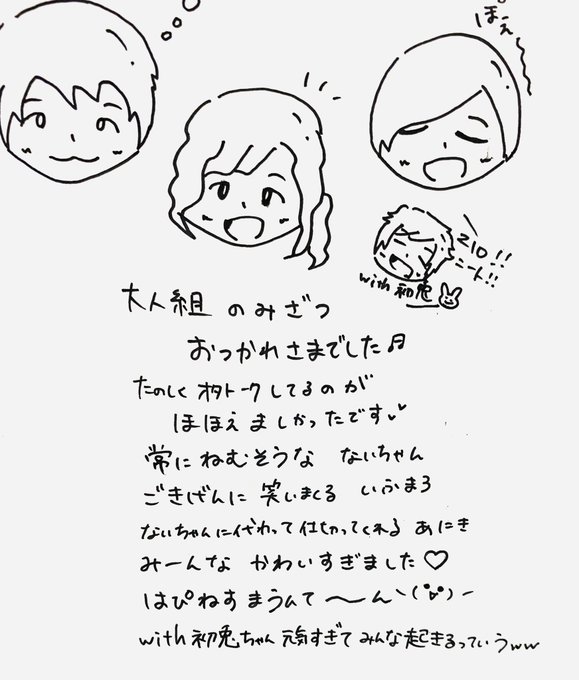 ぽえ〜
ニート!!
with 初兎
大人組 のみざつ
おつかれさまでした♬
たのしく オタトークしてるのが
ほほえましかったです♥♥
常に ねむそうな ないちゃん
ごきげんに 笑いまくる いふまろ
ないちゃんに代わって仕切ってくれる あにき
みーんな かわいすぎました♡
はぴねすまうんて〜ん
with 初兎ちゃん 元気すぎて みんな起きるっていうww